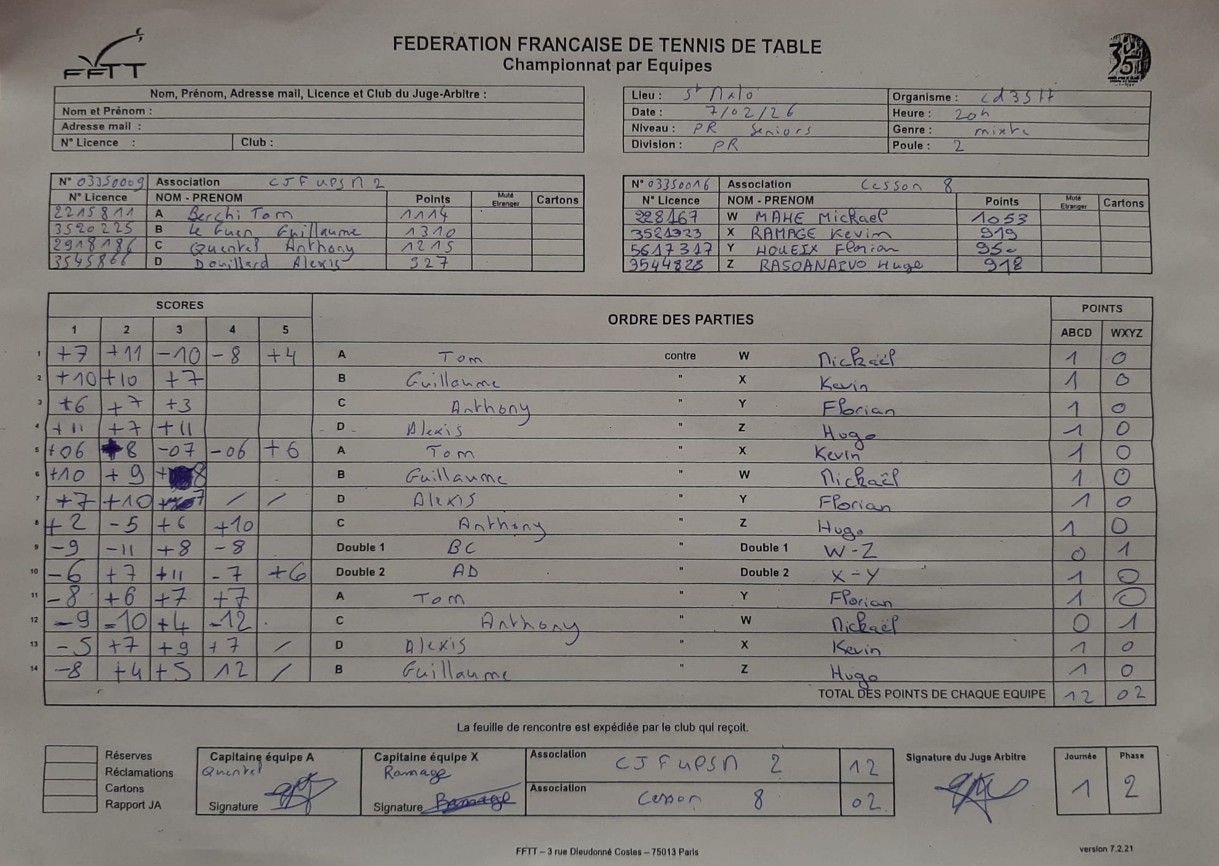 FFTT
FEDERATION FRANCAISE DE TENNIS DE TABLE
Championnat par Equipes
Nom, Prénom, Adresse mail, Licence et Club du Juge-Arbitre :
Nom et Prénom :
Adresse mail :
N° Licence : Club :
Lieu : St Malo Organisme : cd35tt
Date : 7/02/26 Heure : 20h
Niveau : PR Seniors Genre : mixte
Division : PR Poule : 2
N° 03350009 Association CJF UPSM 2
N° Licence NOM - PRENOM Points Muté Etranger Cartons
2215811 A Berchi Tom 1114
3520225 B Le Guen Guillaume 1310
2918186 C Quentel Anthony 1215
3545866 D Douillard Alexis 927
N° 03350016 Association Cesson 8
N° Licence NOM - PRENOM Points Muté Etranger Cartons
228167 W MAHE Mickael 1053
3521923 X RAMAGE Kevin 919
5617317 Y HOUEIX Florian 950
3544828 Z RASOANAIVO Hugo 918
SCORES ORDRE DES PARTIES POINTS
1 2 3 4 5 ABCD WXYZ
1 +7 +11 -10 -8 +4 A Tom contre W Mickaël 1 0
2 +10 +10 +7 B Guillaume " X Kevin 1 0
3 +6 +7 +3 C Anthony " Y Florian 1 0
4 +11 +7 +11 D Alexis " Z Hugo 1 0
5 +06 +8 -07 -06 +6 A Tom " X Kevin 1 0
6 +10 +9 +8 B Guillaume " W Mickaël 1 0
7 +7 +10 +7 / / D Alexis " Y Florian 1 0
8 +2 -5 +6 +10 C Anthony " Z Hugo 1 0
9 -9 -11 +8 -8 Double 1 BC " Double 1 W-Z 0 1
10 -6 +7 +11 -7 +6 Double 2 AD " Double 2 X-Y 1 0
11 -8 +6 +7 +7 A Tom " Y Florian 1 0
12 -9 -10 +4 -12 C Anthony " W Mickaël 0 1
13 -5 +7 +9 +7 / D Alexis " X Kevin 1 0
14 -8 +4 +5 12 / B Guillaume " Z Hugo 1 0
TOTAL DES POINTS DE CHAQUE EQUIPE 12 02
La feuille de rencontre est expédiée par le club qui reçoit.
Réserves
Réclamations
Cartons
Rapport JA
Capitaine équipe A
Quentel
Signature
Capitaine équipe X
Ramage
Signature Ramage
Association CJF UPSM 2 12
Association Cesson 8 02
Signature du Juge Arbitre
Journée Phase
1 2
FFTT – 3 rue Dieudonné Costes – 75013 Paris
version 7.2.21